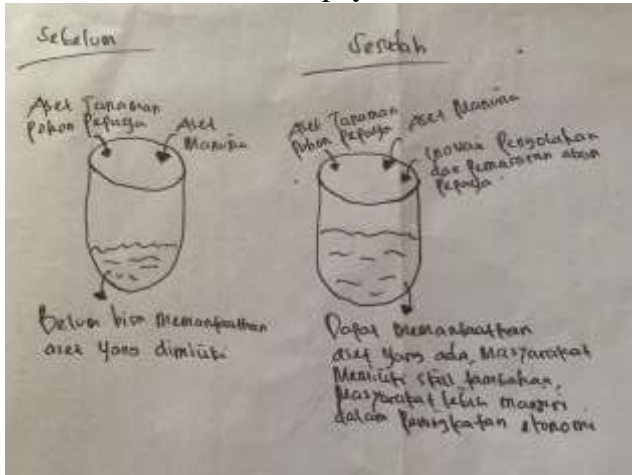 Sebelum
Aset Tanaman
Pohon Pepaya
Aset
Manusia
Belum bisa memanfaatkan
aset yang dimiliki
Sesudah
Aset Tanaman
Pohon Pepaya
Aset Manusia
Inovasi Pengolahan
dan Pemasaran abon
Pepaya
Dapat memanfaatkan
aset yang ada, Masyarakat
Memiliki skill tambahan,
Masyarakat lebih mandiri
dalam Peningkatan ekonomi